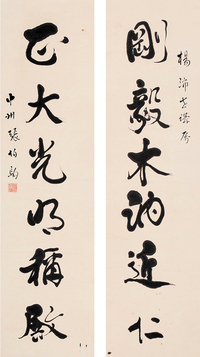 楊沛老譔句
剛毅木訥近仁
正大光明稱殿
中州張伯駒